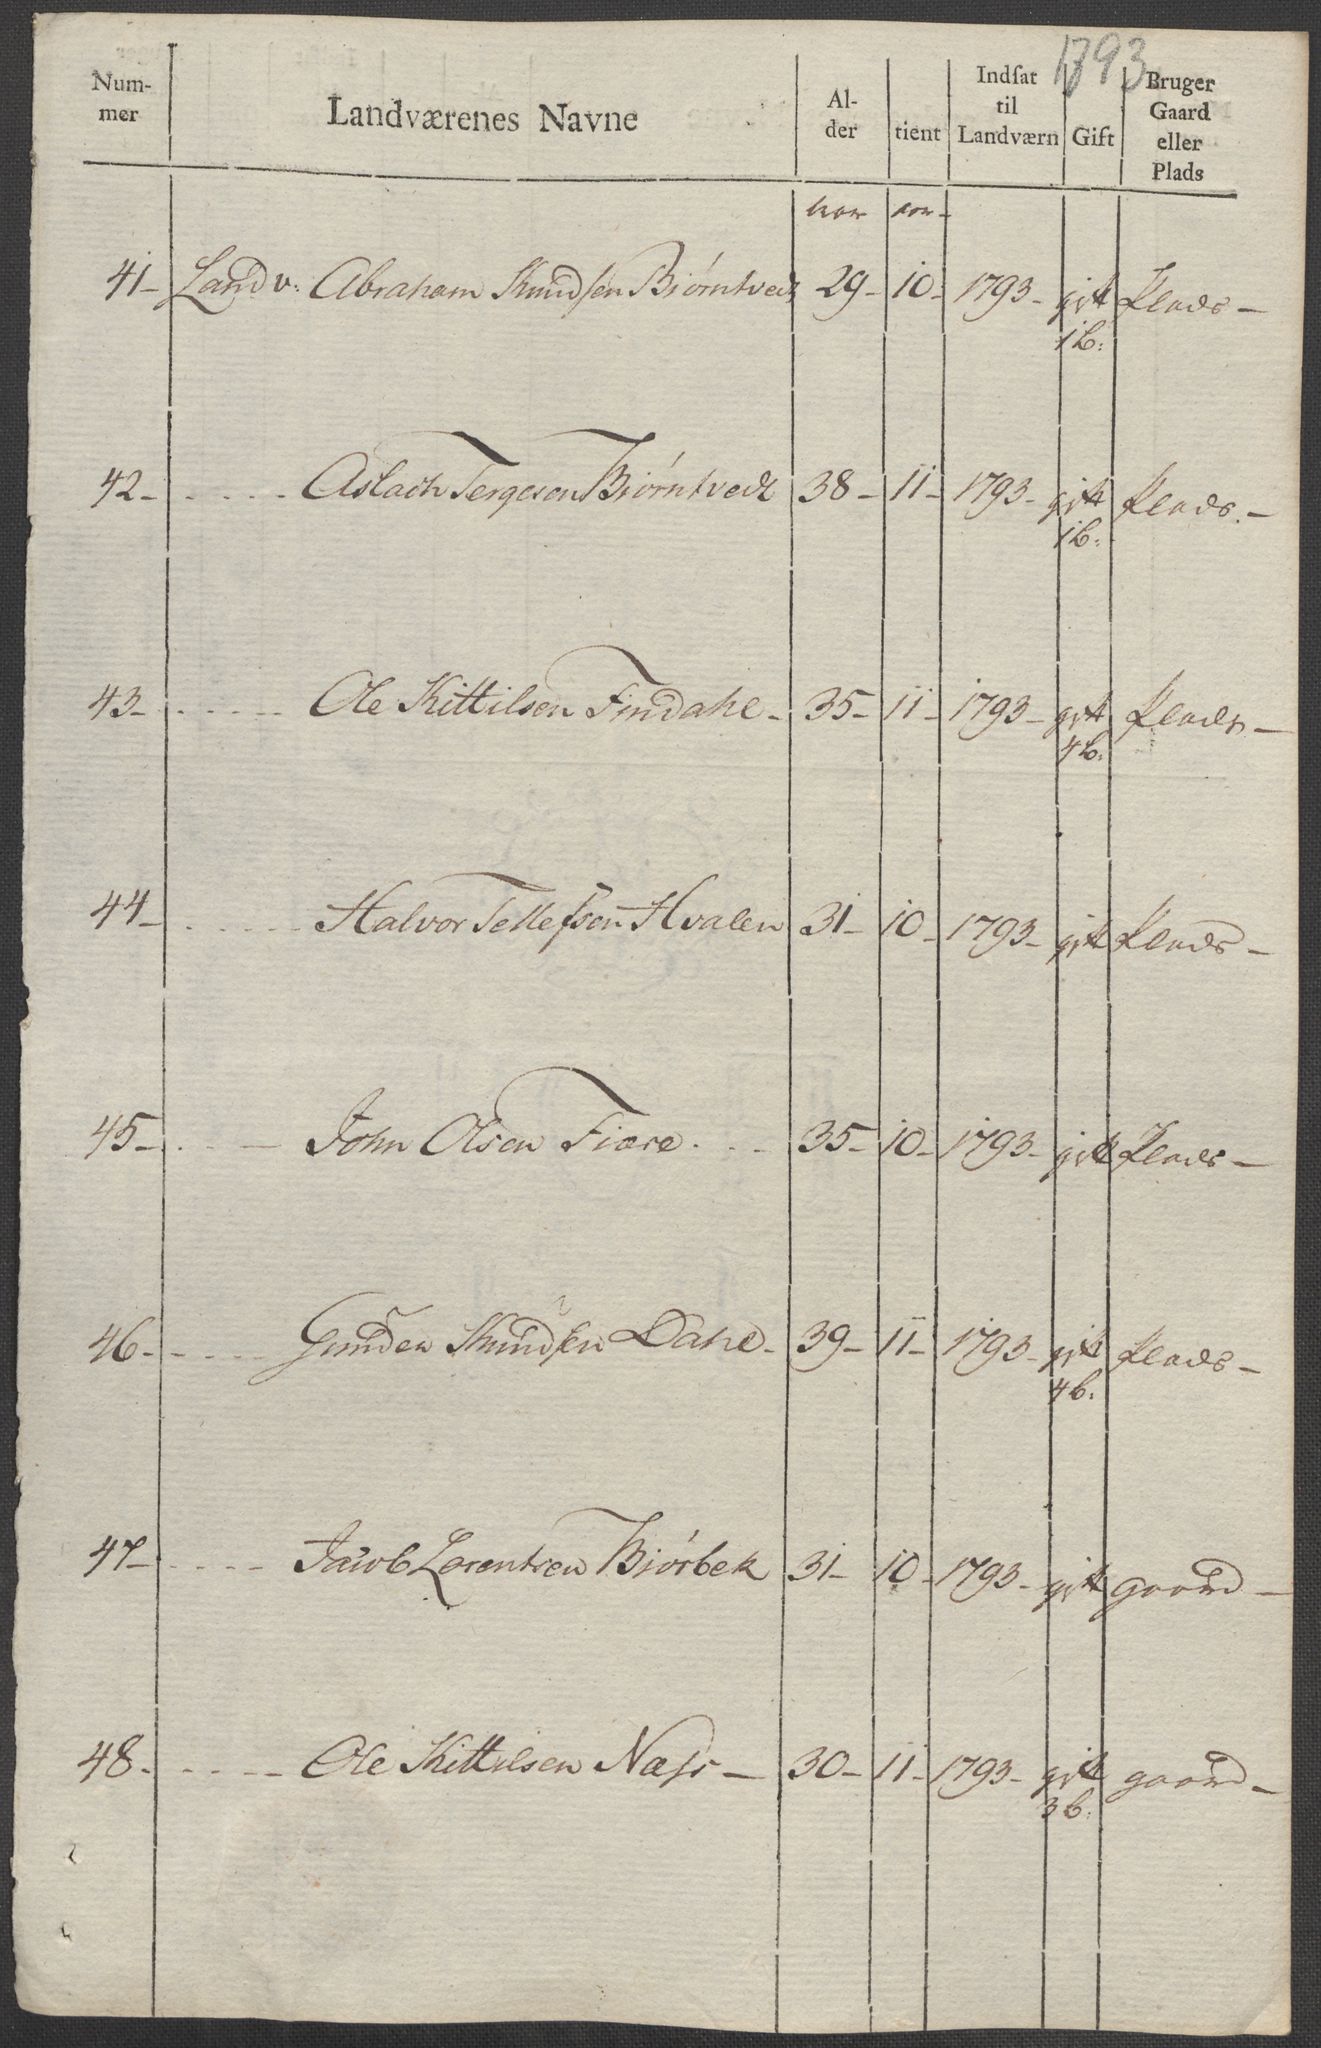 1793
Nummer Landværenes Navne Alder tient Indsat til Landværn Gift Bruger Gaard eller Plads
aar aar
41 Landv: Abraham Knudsen Biørntvedt 29 10 1793 gift Plads
1 b:
42 Aslach Tergesen Biørntvedt 38 11 1793 gift Plads
1 b:
43 Ole Kittilsen Findahl 35 11 1793 gift Plads
4 b:
44 Halvor Tellefsen Hvalen 31 10 1793 gift Plads
45 John Olsen Fiære 35 10 1793 gift Plads
46 Gunder Knudsen Dahl 39 11 1793 gift Plads
4 b.
47 Jacob Lorentsen Biørbek 31 10 1793 gift gaard
48 Ole Kittilsen Næss 30 11 1793 gift gaard
3 b: